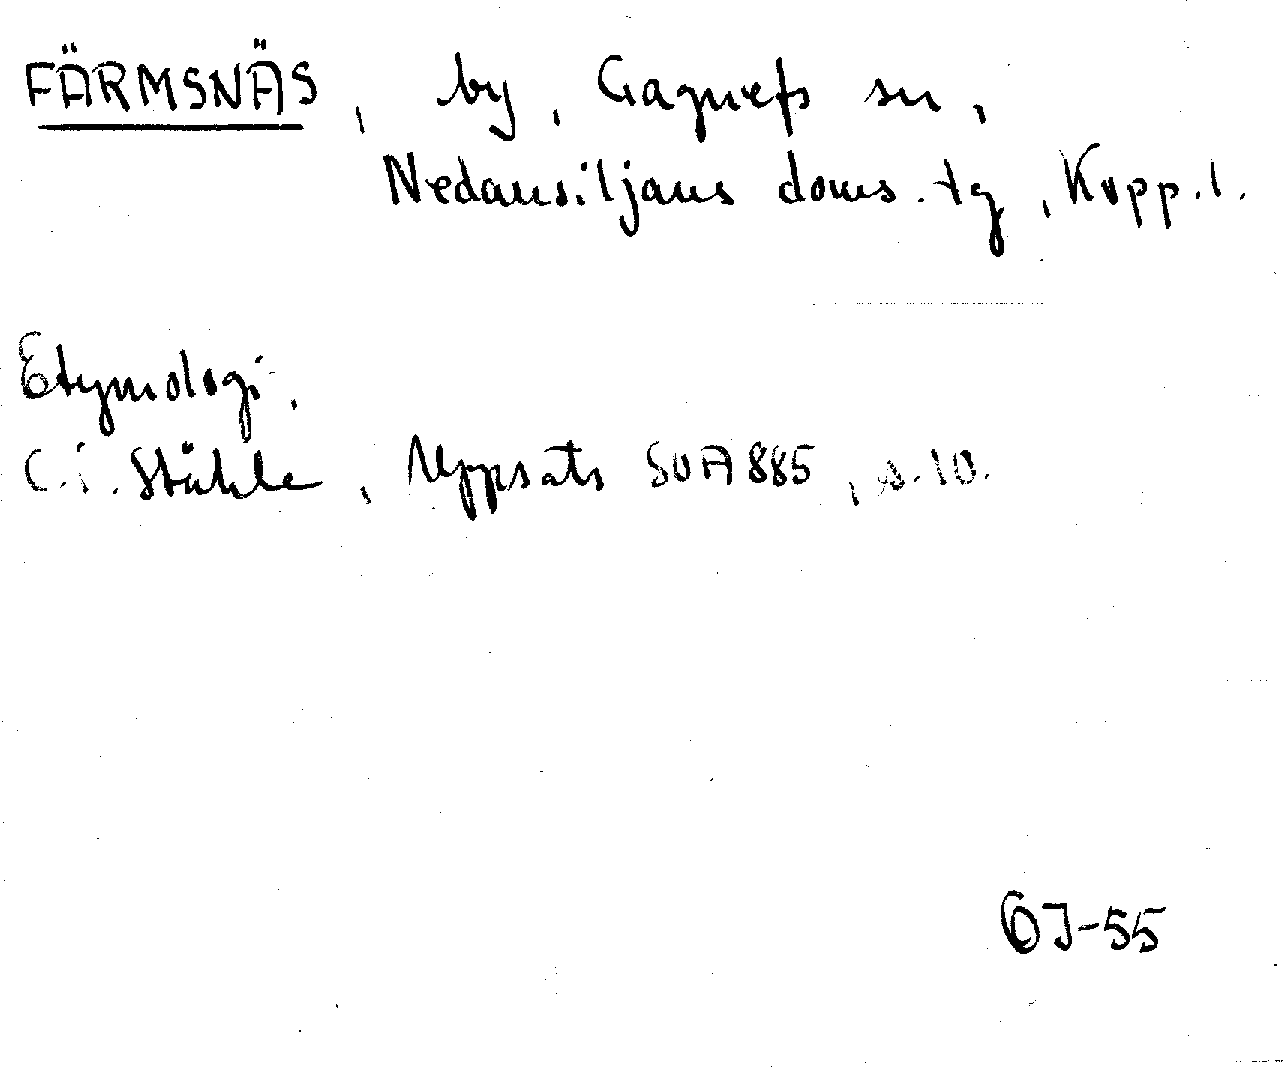 FÄRMSNÄS, by, Gagnefs sn,
Nedansiljans doms.tg, Kopp.l.
Etymologi.
C.I. Ståhle, Uppsats SOA 885, s.10.
OJ-55